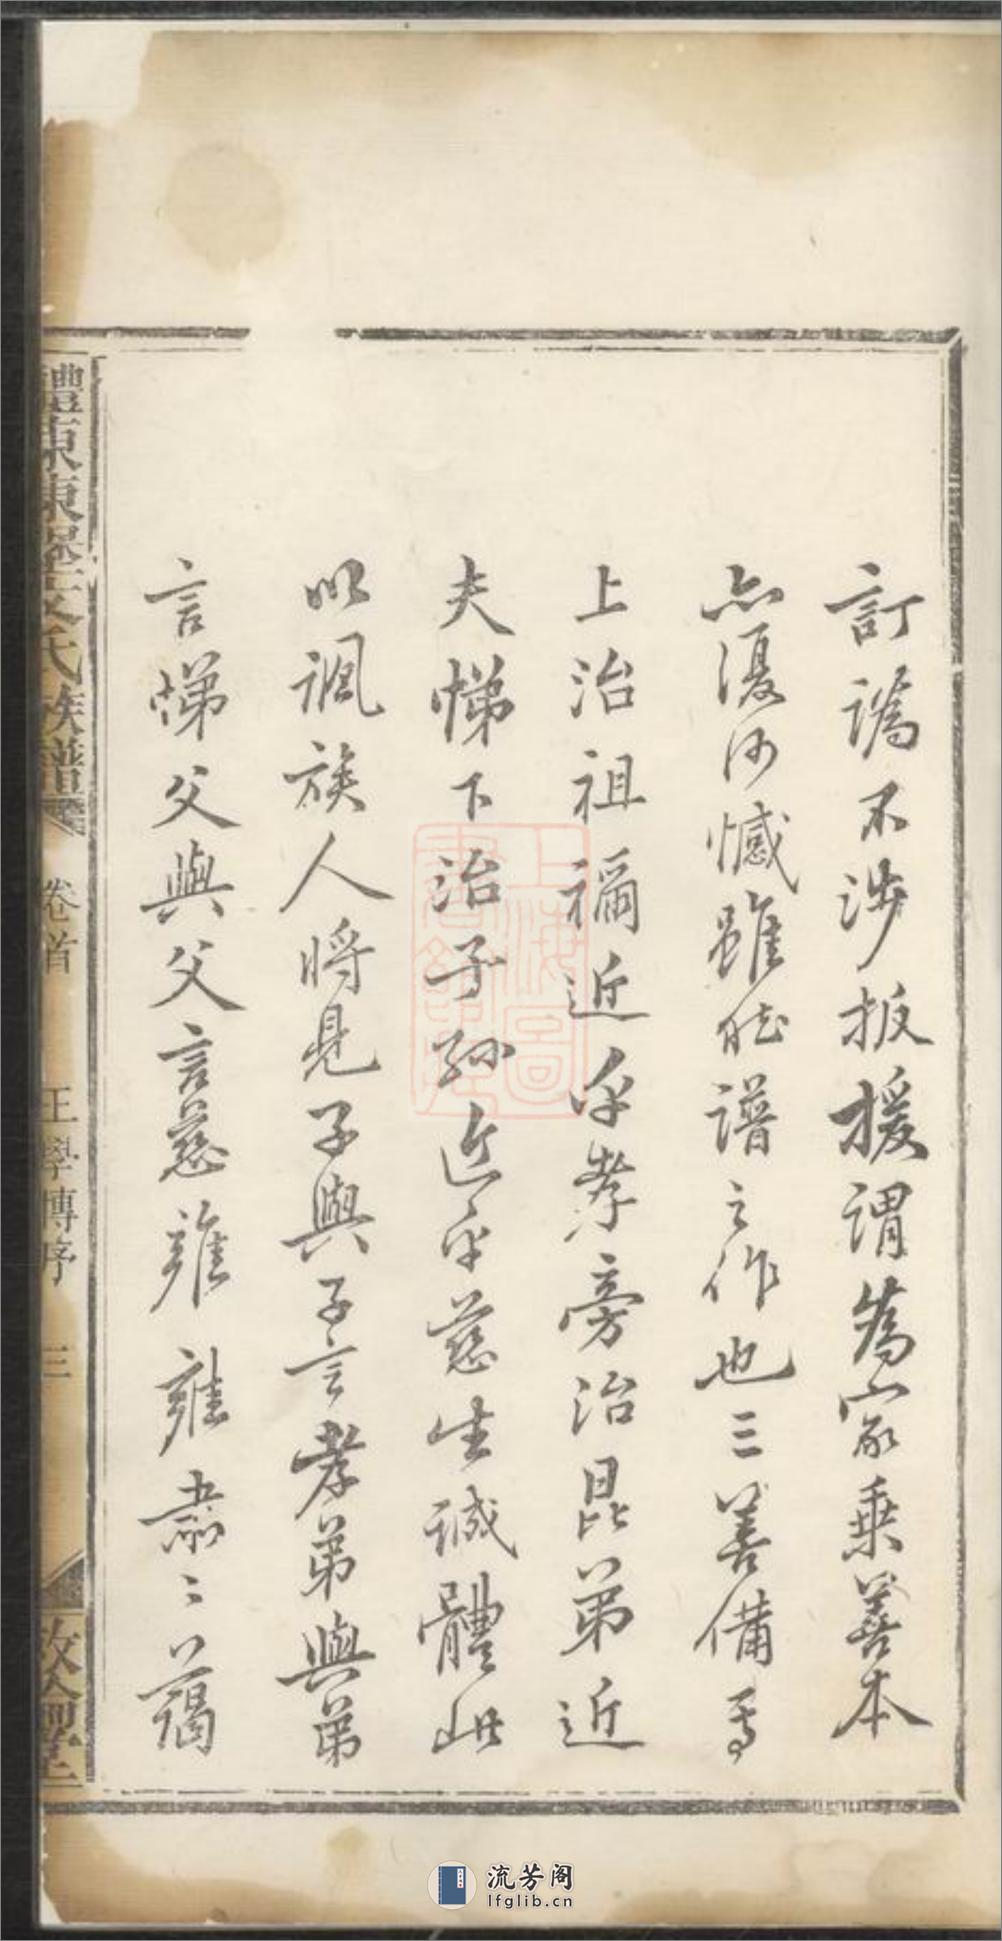 訂譌不涉扳援謂為家乘善本
亦復何憾雖然譜之作也三善備焉
上治祖禰近乎孝旁治昆弟近
夫悌下治子孫近乎慈生誠體此
以諷族人將見子與子言孝弟與弟
言悌父與父言慈雍雍肅〻藹
醴東東堡文氏族譜
卷首
王學博序
三
上海圖書館藏
流芳阁
lfglib.cn